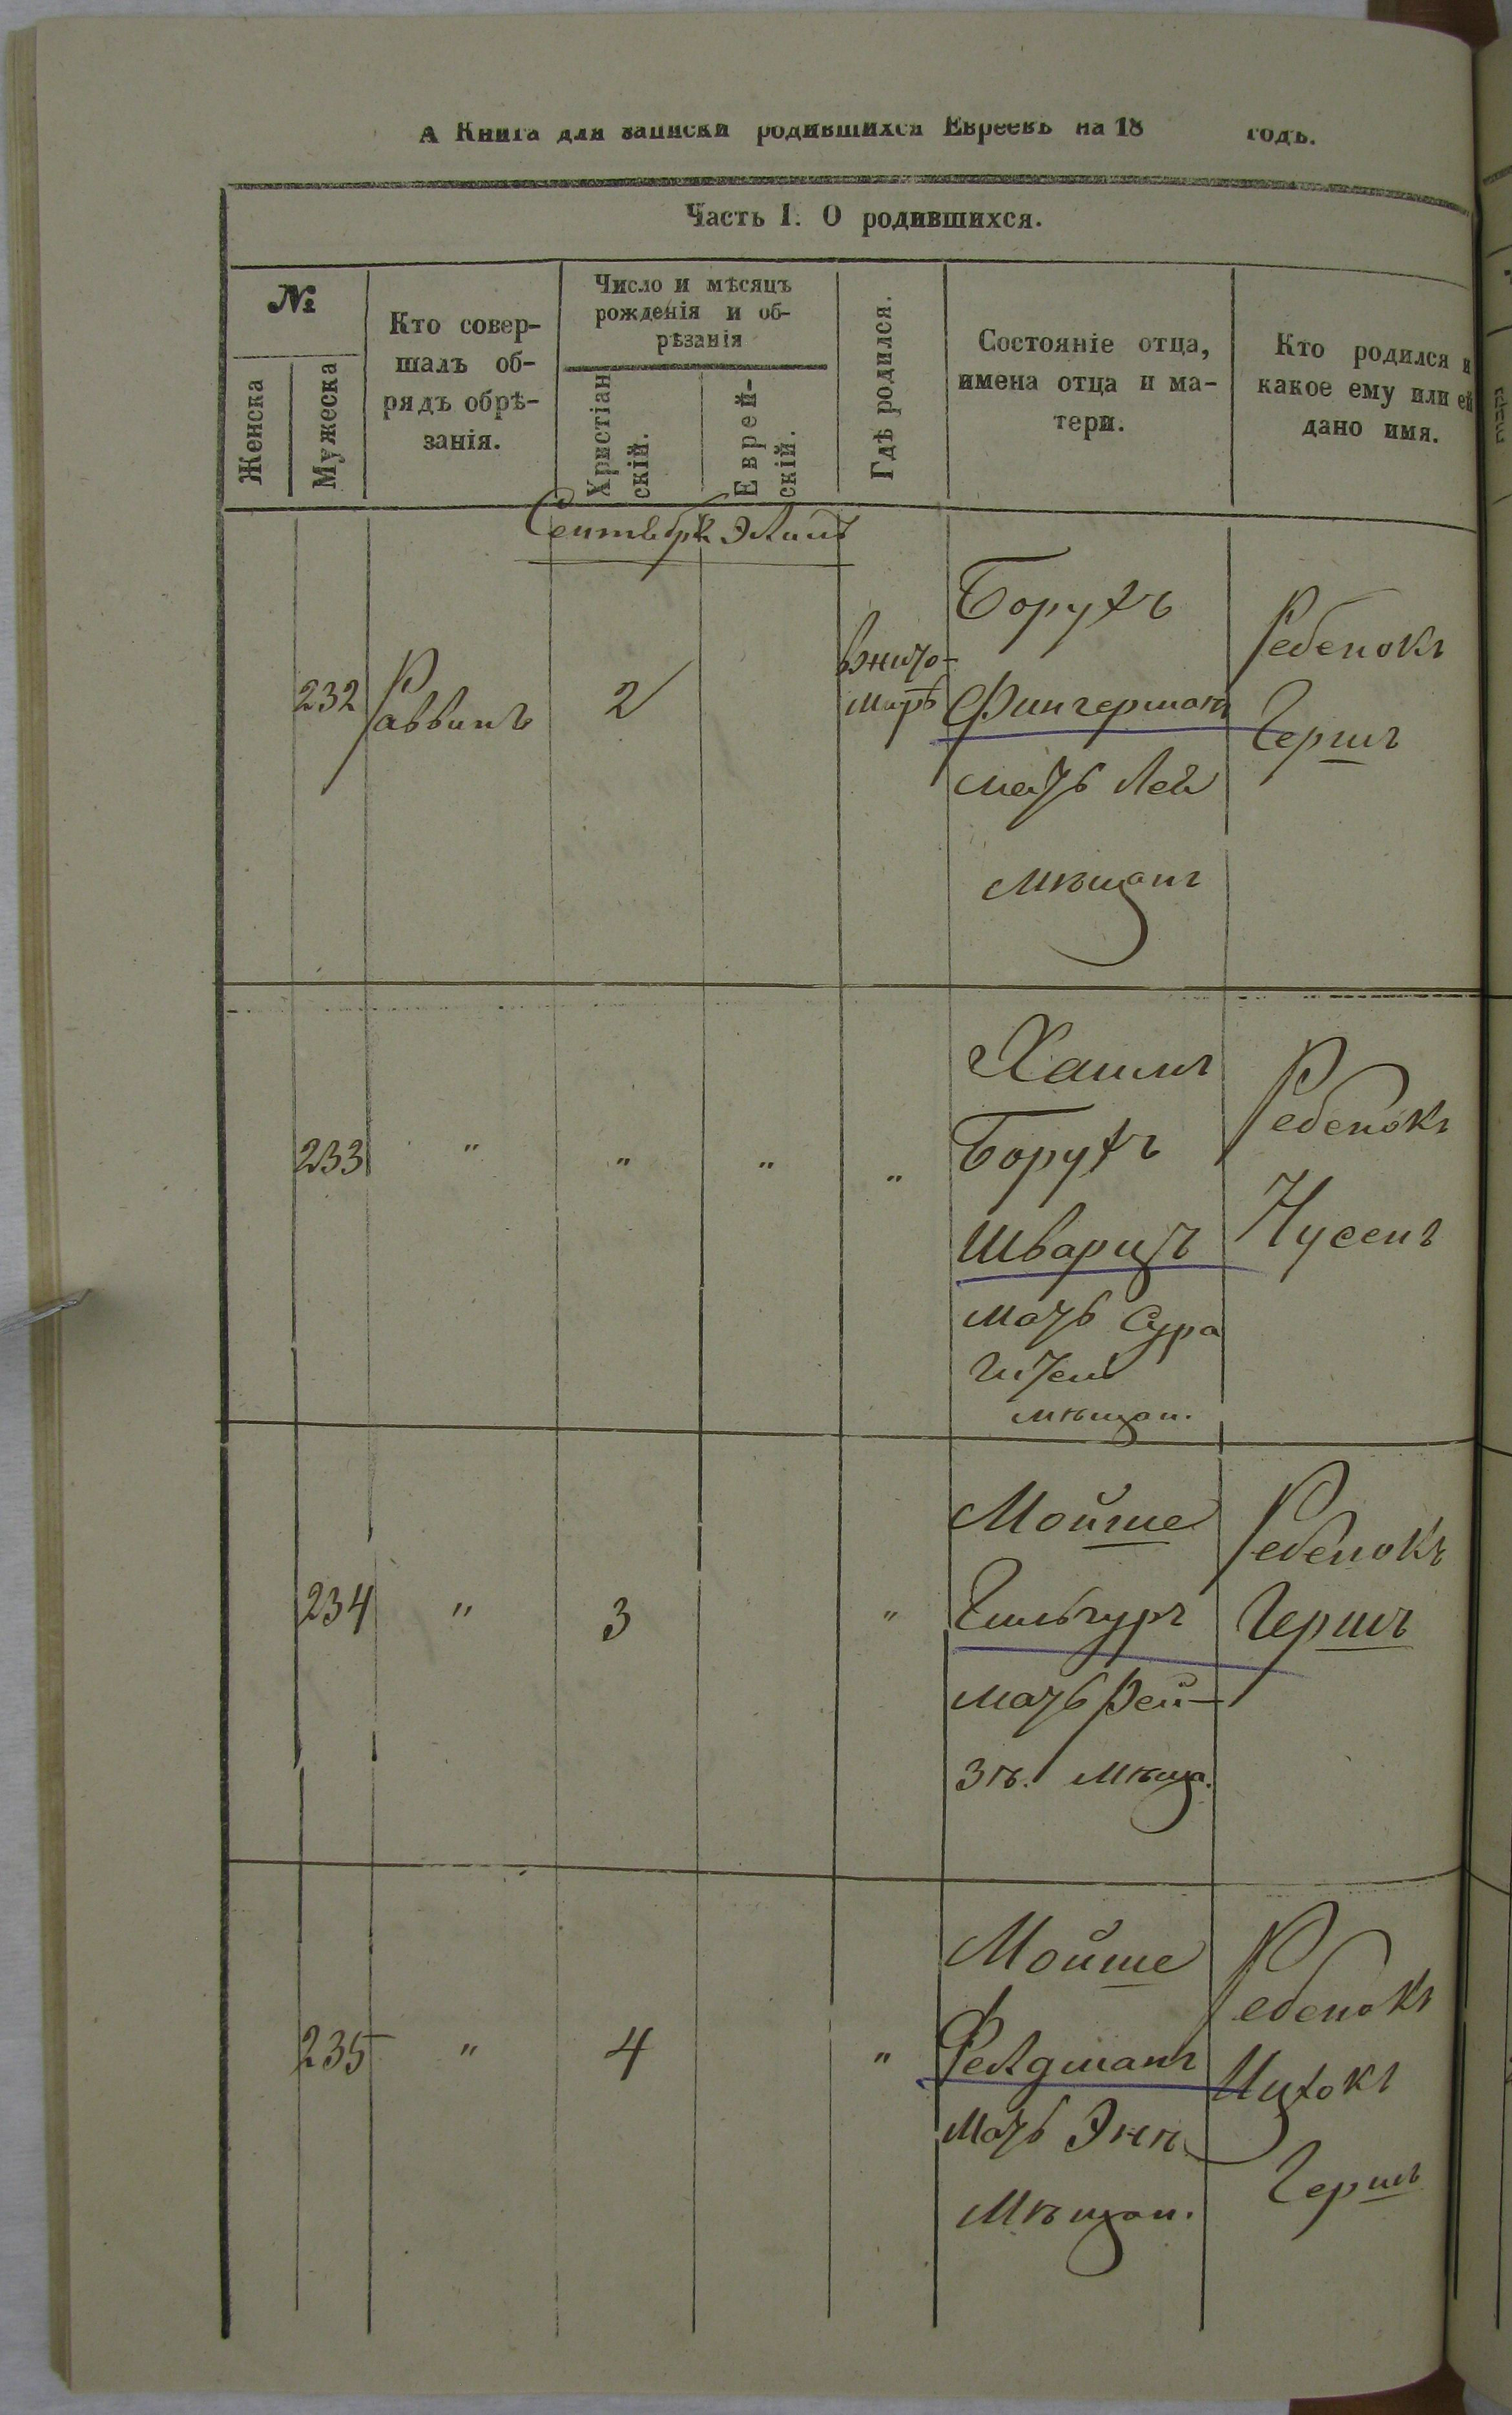 А Книга для записки родившихся Евреевъ на 18 годъ.
Часть I. О родившихся.
№
Женска
Мужеска
Кто совер-
шалъ об-
рядъ обрѣ-
занія.
Число и мѣсяцъ
рожденія и об-
рѣзанія
Христіан
скій.
Еврей-
скій.
Гдѣ родился.
Состояніе отца,
имена отца и ма-
тери.
Кто родился и
какое ему или ей
дано имя.
Сентябрь
232
Раввинъ
2
В Жито-
миръ
Борухъ
Фингерманъ
мать Лея
мѣщанъ
Ребенокъ
Гершъ
233
"
"
"
"
Хаимъ
Борухъ
Шварцъ
мать Сура
Гитель
мѣщан.
Ребенокъ
Нусенъ
234
"
3
"
Мойше
мать Рей-
зѣ. мѣща.
Ребенокъ
Гершъ
235
"
4
"
Мойше
Фелдманъ
мать Энѣ
Мѣщан.
Ребенокъ
Ицхокъ
Гершъ